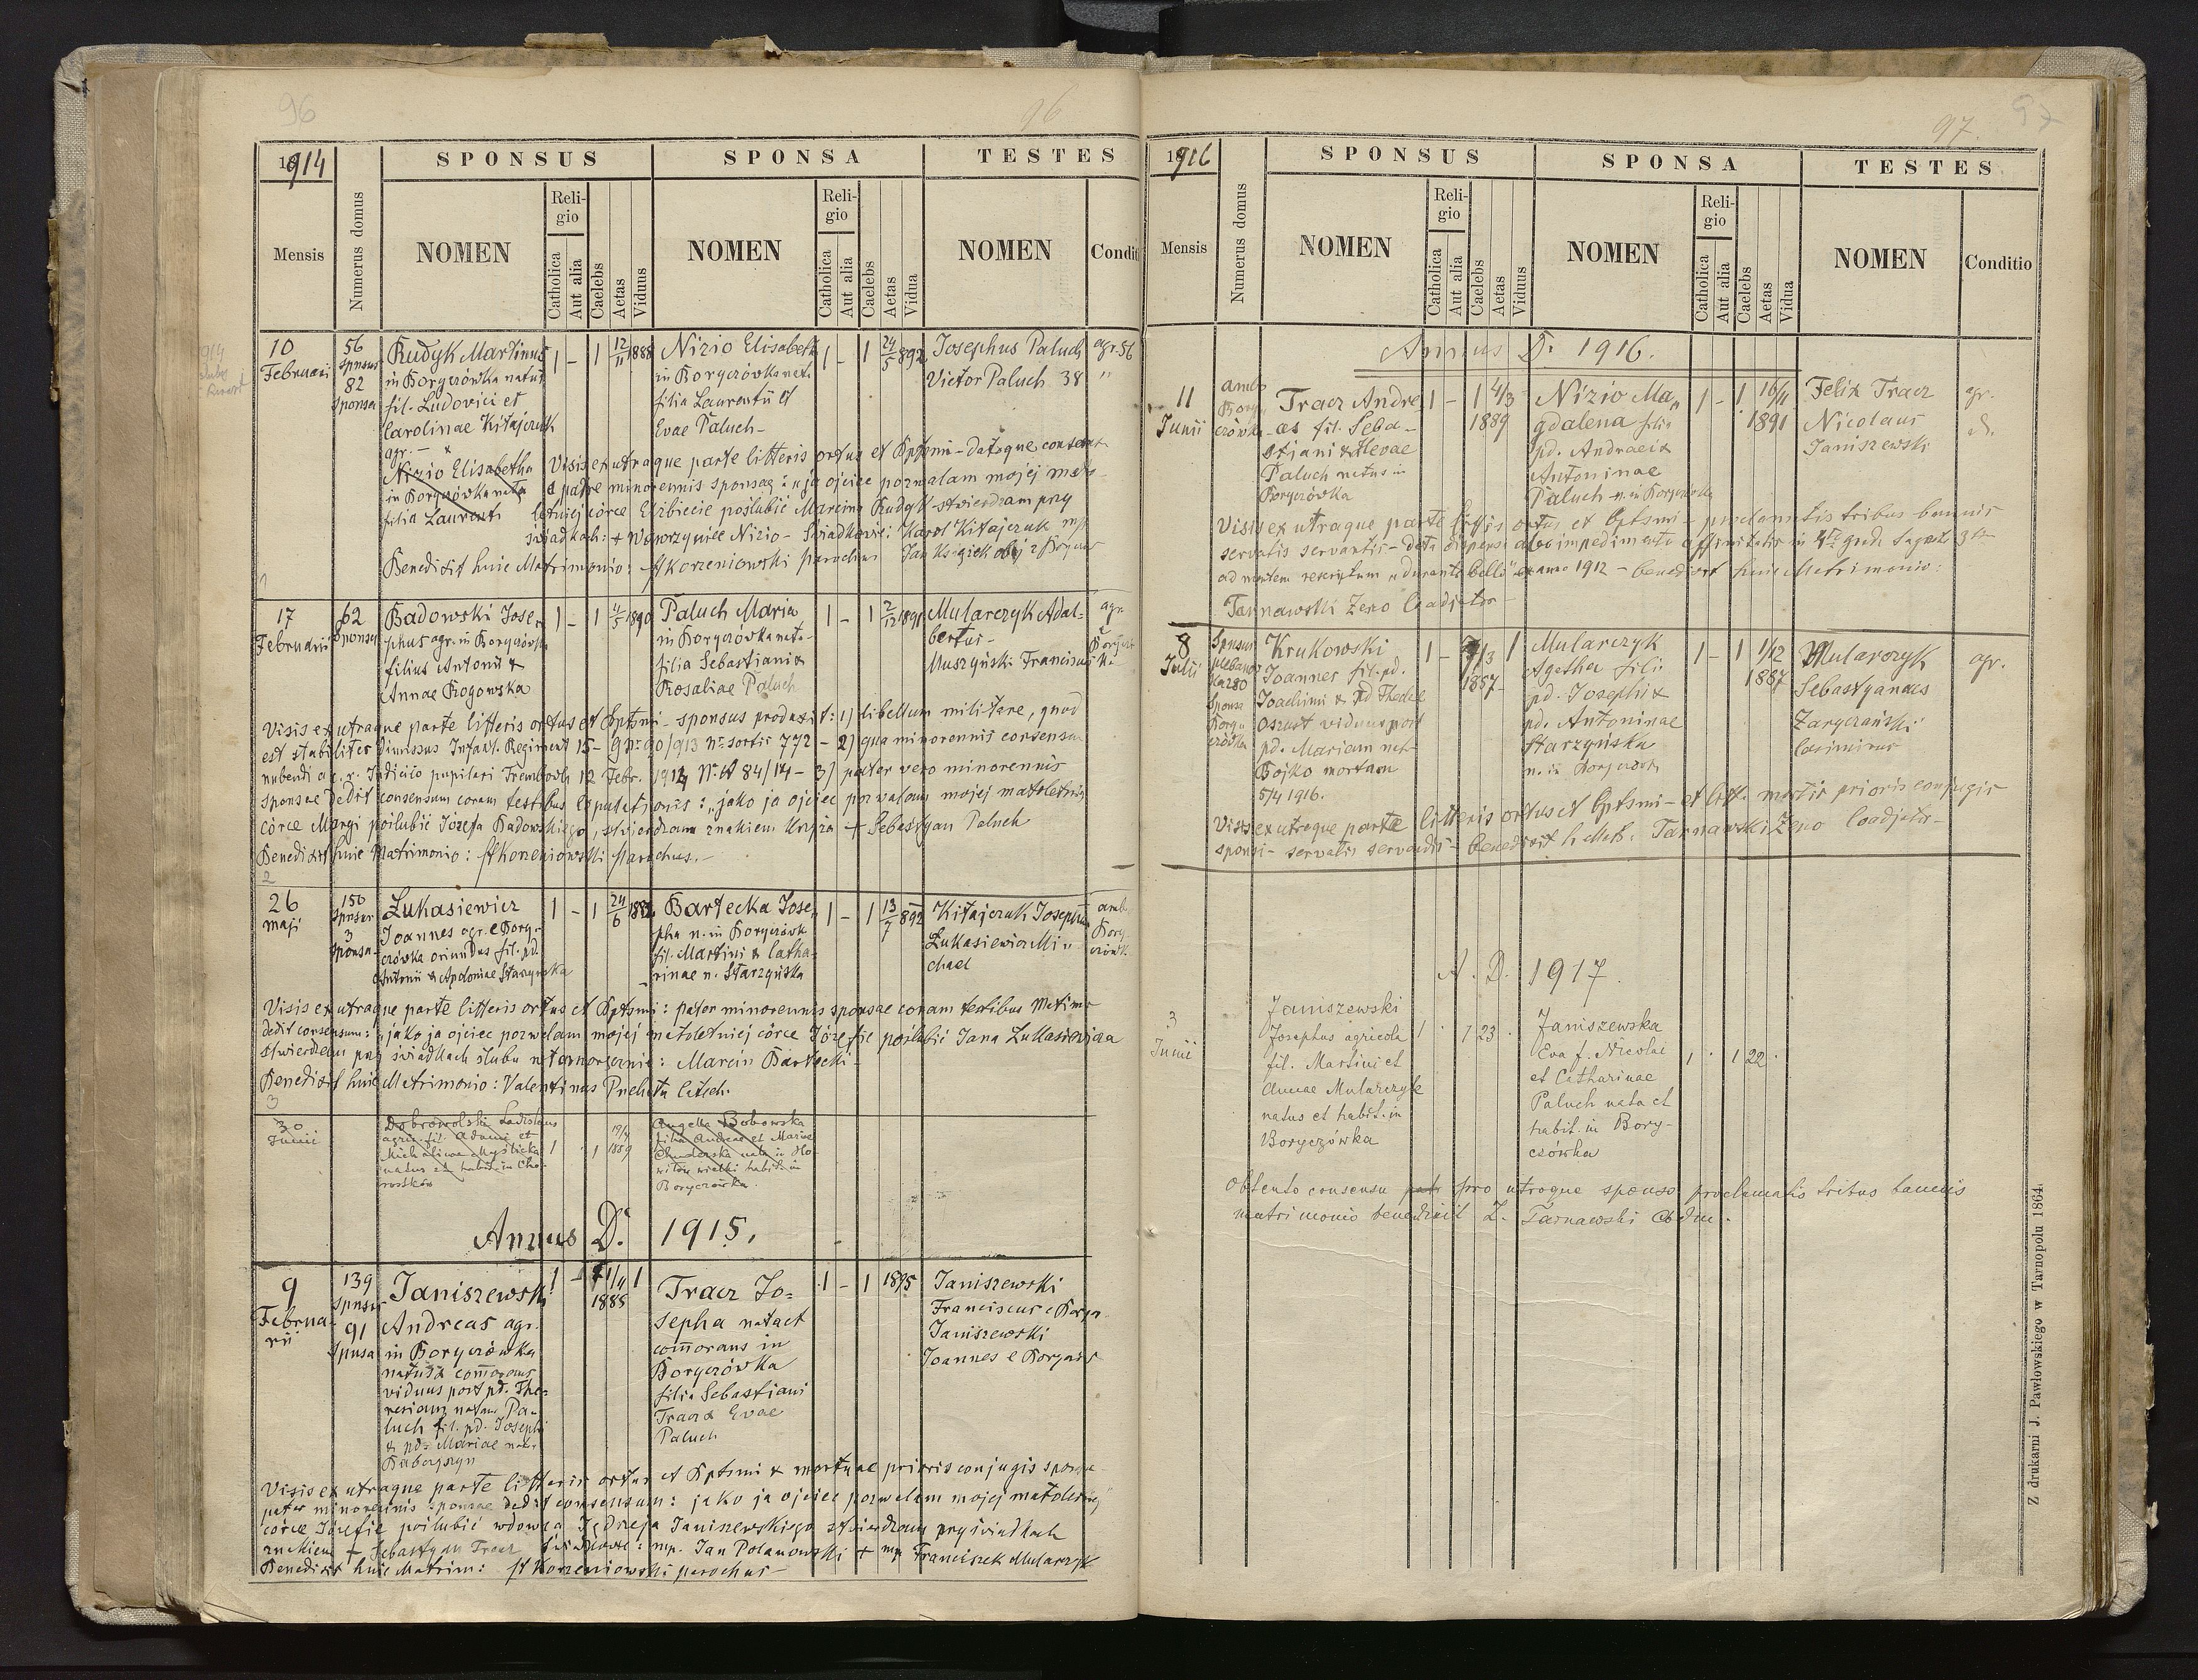 96
96
1914
SPONSUS
SPONSA
TESTES
Mensis
Numerus domus
NOMEN
Religio
Catholica
Aut alia
Caelebs
Aetas
Viduus
NOMEN
Religio
Catholica
Aut alia
Caelebs
Aetas
Vidua
NOMEN
Condit
10
Februari
56
sponsus
82
sponsa
Rudyk Martinus
in Boryczówka natus
fil. Ludovici et
Carolinae Kitajczuk
agr. -
1 - 1 12/11 1888
Nizio Elisabeth
in Boryczówka nata
filia Laurentii et
Evae Paluch -
1 - 1 24/5 892
Josephus Paluch agr. 56
Victor Paluch 38 "
Nizio Elisabetha
in Boryczówka nata
filia Laurenti
Visis ex utraque parte litteris ortus et Bptsmi - datoque consensu
a patre minorennis sponsae: "ja ojciec pozwalam mojej mało-
letniej córce Elżbiecie poślubić Marcina Rudyk - stwierdzam przy
świadkach: + Wawrzyniec Nizio - Świadkowie: Karol Kitajczuk mp
Benedixit huic Matrimonio: Korzeniowski parochus
17
Februarii
62
sponsa
Badowski Jose-
phus agr. in Boryczówka
filius Antonii &
Annae Rogowska
1 - 1 1890
Paluch Maria
in Boryczówka nata -
filia Sebastiani &
Rosaliae Paluch
1 - 1
Mularczyk Adal-
bertus -
Muszyński Franciscus
agr.
Visis ex utraque parte litteris ortus et Bptsmi - sponsus produxit: 1) libellum militare, quod
est stabiliter dimissus Infant. Regiment 15 - No sortis 772 - 2) qua minorennis consensum
nubendi a c. r. Judicio pupilari Trembowla 12 Febr. 1914 Nr. 84/14 - 3) pater vero minorennis
sponsae dedit consensum coram testibus Copulationis: "jako ja ojciec pozwalam mojej małoletniej
córce Maryi poślubić Józefa Badowskiego, stwierdzam znakiem krzyża + Sebastyan Paluch
Benedixit huic Matrimonio: Korzeniowski parochus. -
2
26
maji
150
sponsus
3
sponsa
Łukasiewicz
Joannes agr. e Bory-
czówka oriundus fil. pd.
Antonii & Apoloniae Starzyńska
1 - 1 24/6
Bartecka Jose-
pha n. in Boryczówk
fil. Martini & Catha-
rinae n. Starzyńska
1 - 1 13/7 892
Kitajczuk Josephus
Łukasiewicz Mi-
chael
amb.
Bory
czówk.
Visis ex utraque parte litteris ortus et Bptsmi: pater minorennis sponsae coram testibus Matrim
dedit consensum: "jako ja ojciec pozwalam mojej małoletniej córce Józefie poślubić Jana Łukasiewicza
stwierdzam przy świadkach ślubu własnoręcznie: Marcin Bartecki -
Benedixit huic Matrimonio: Valentinus
3
30
Junii
Dobrowolski Ladislaus
agric. fil. Adami et
Michalinae Myślicka
natus et habit. in Cho-
rostków
1 1 1889
Angela Bobowska
filia Andreae et Mariae
nata in Ho-
wiłów wielki habit. in
Boryczówka.
Annus D. 1915.
9
Februa-
rii
139
sponsus
91
sponsa
Janiszewski
Andreas agr.
in Boryczówka
natus & commorans
viduus post pd. The-
resiam natam Pa-
luch fil. pd. Josephi
& pd. Mariae nata
1 - 1885 1
Tracz Jo-
sepha nata et
commorans in
Boryczówka
filia Sebastiani
Tracz & Evae
Paluch
1 - 1 1895
Janiszewski
Franciscus e Borycz.
Janiszewski
Joannes e Borycz
Visis ex utraque parte litteris ortus et Bptsmi & mortuae prioris conjugis sponsi
pater minorennis sponsae dedit consensum: jako ja ojciec pozwalam mojej małoletniej
córce Józefie poślubić wdowca Jędrzeja Janiszewskiego stwierdzam przy świadkach
znakiem + Sebastyan Tracz świadkowie: mp. Jan Polanowski + mp Franciszek Mularczyk
Benedixit huic Matrim: Korzeniowski parochus -
97.
97
1916
SPONSUS
SPONSA
TESTES
Mensis
Numerus domus
NOMEN
Religio
Catholica
Aut alia
Caelebs
Aetas
Viduus
NOMEN
Religio
Catholica
Aut alia
Caelebs
Aetas
Vidua
NOMEN
Conditio
Annus D. 1916.
11
Junii
ambo
Bory-
czówka
Tracz Andre-
as fil. Seba-
stjani & Hevae
Paluch natus in
Boryczówka
1 - 1 4/3
1889
Nizio Ma-
gdalena filia
pd. Andraei &
Antoninae
Paluch n. in Boryczówka
1 - 1 16/11
1891
Felix Tracz
Nicolaus
Janiszewski
agr.
Visis ex utraque parte littris ortus et Bptsmi - proclamatis tribus bannis
servatis servandis - data dispensa ab impedimento affinitatis in
ad mentem rescriptum "durante bello" anno 1912 - benedixit huic Matrimonio:
Tarnawski Zeno Coadjutor -
8
Julii
Sponsus
280
Sponsa
Bory-
czówka
Krukowski
Joannes fil. pd.
Joachimi & pd Theclae
Oszust viduus post
pd. Mariam nat.
Bojko mortuam
5/4 1916.
1 - 1/3 1
1857
Mularczyk
Agatha fil.
pd. Josephi &
pd. Antoninae
Starzyńska
n. in Boryczówk
1 - 1 1/12
1887
Mularczyk
Sebastyanus
Zaryczański
Casimirus
agr.
Visis ex utraque parte litteris ortus et Bptsmi - et litt. mortis prioris conjugis
sponsi - servatis servandis - benedixit h. Matr. Tarnawski Zeno Coadjutor -
A. D. 1917.
3
Junii
Janiszewski
Josephus agricola
fil. Martini et
Annae Mularczyk
natus et habit. in
Boryczówka
1 . 1 23 .
Janiszewska
Eva f. Nicolai
et Catharinae
Paluch nata et
habit. in Bory-
czówka
1 . 1 22 .
Obtento consensu patr pro utroque sponso proclamatis tribus bannis
matrimonio benedixit Z. Tarnawski
Z drukarni J. Pawłowskiego w Tarnopolu 1864.